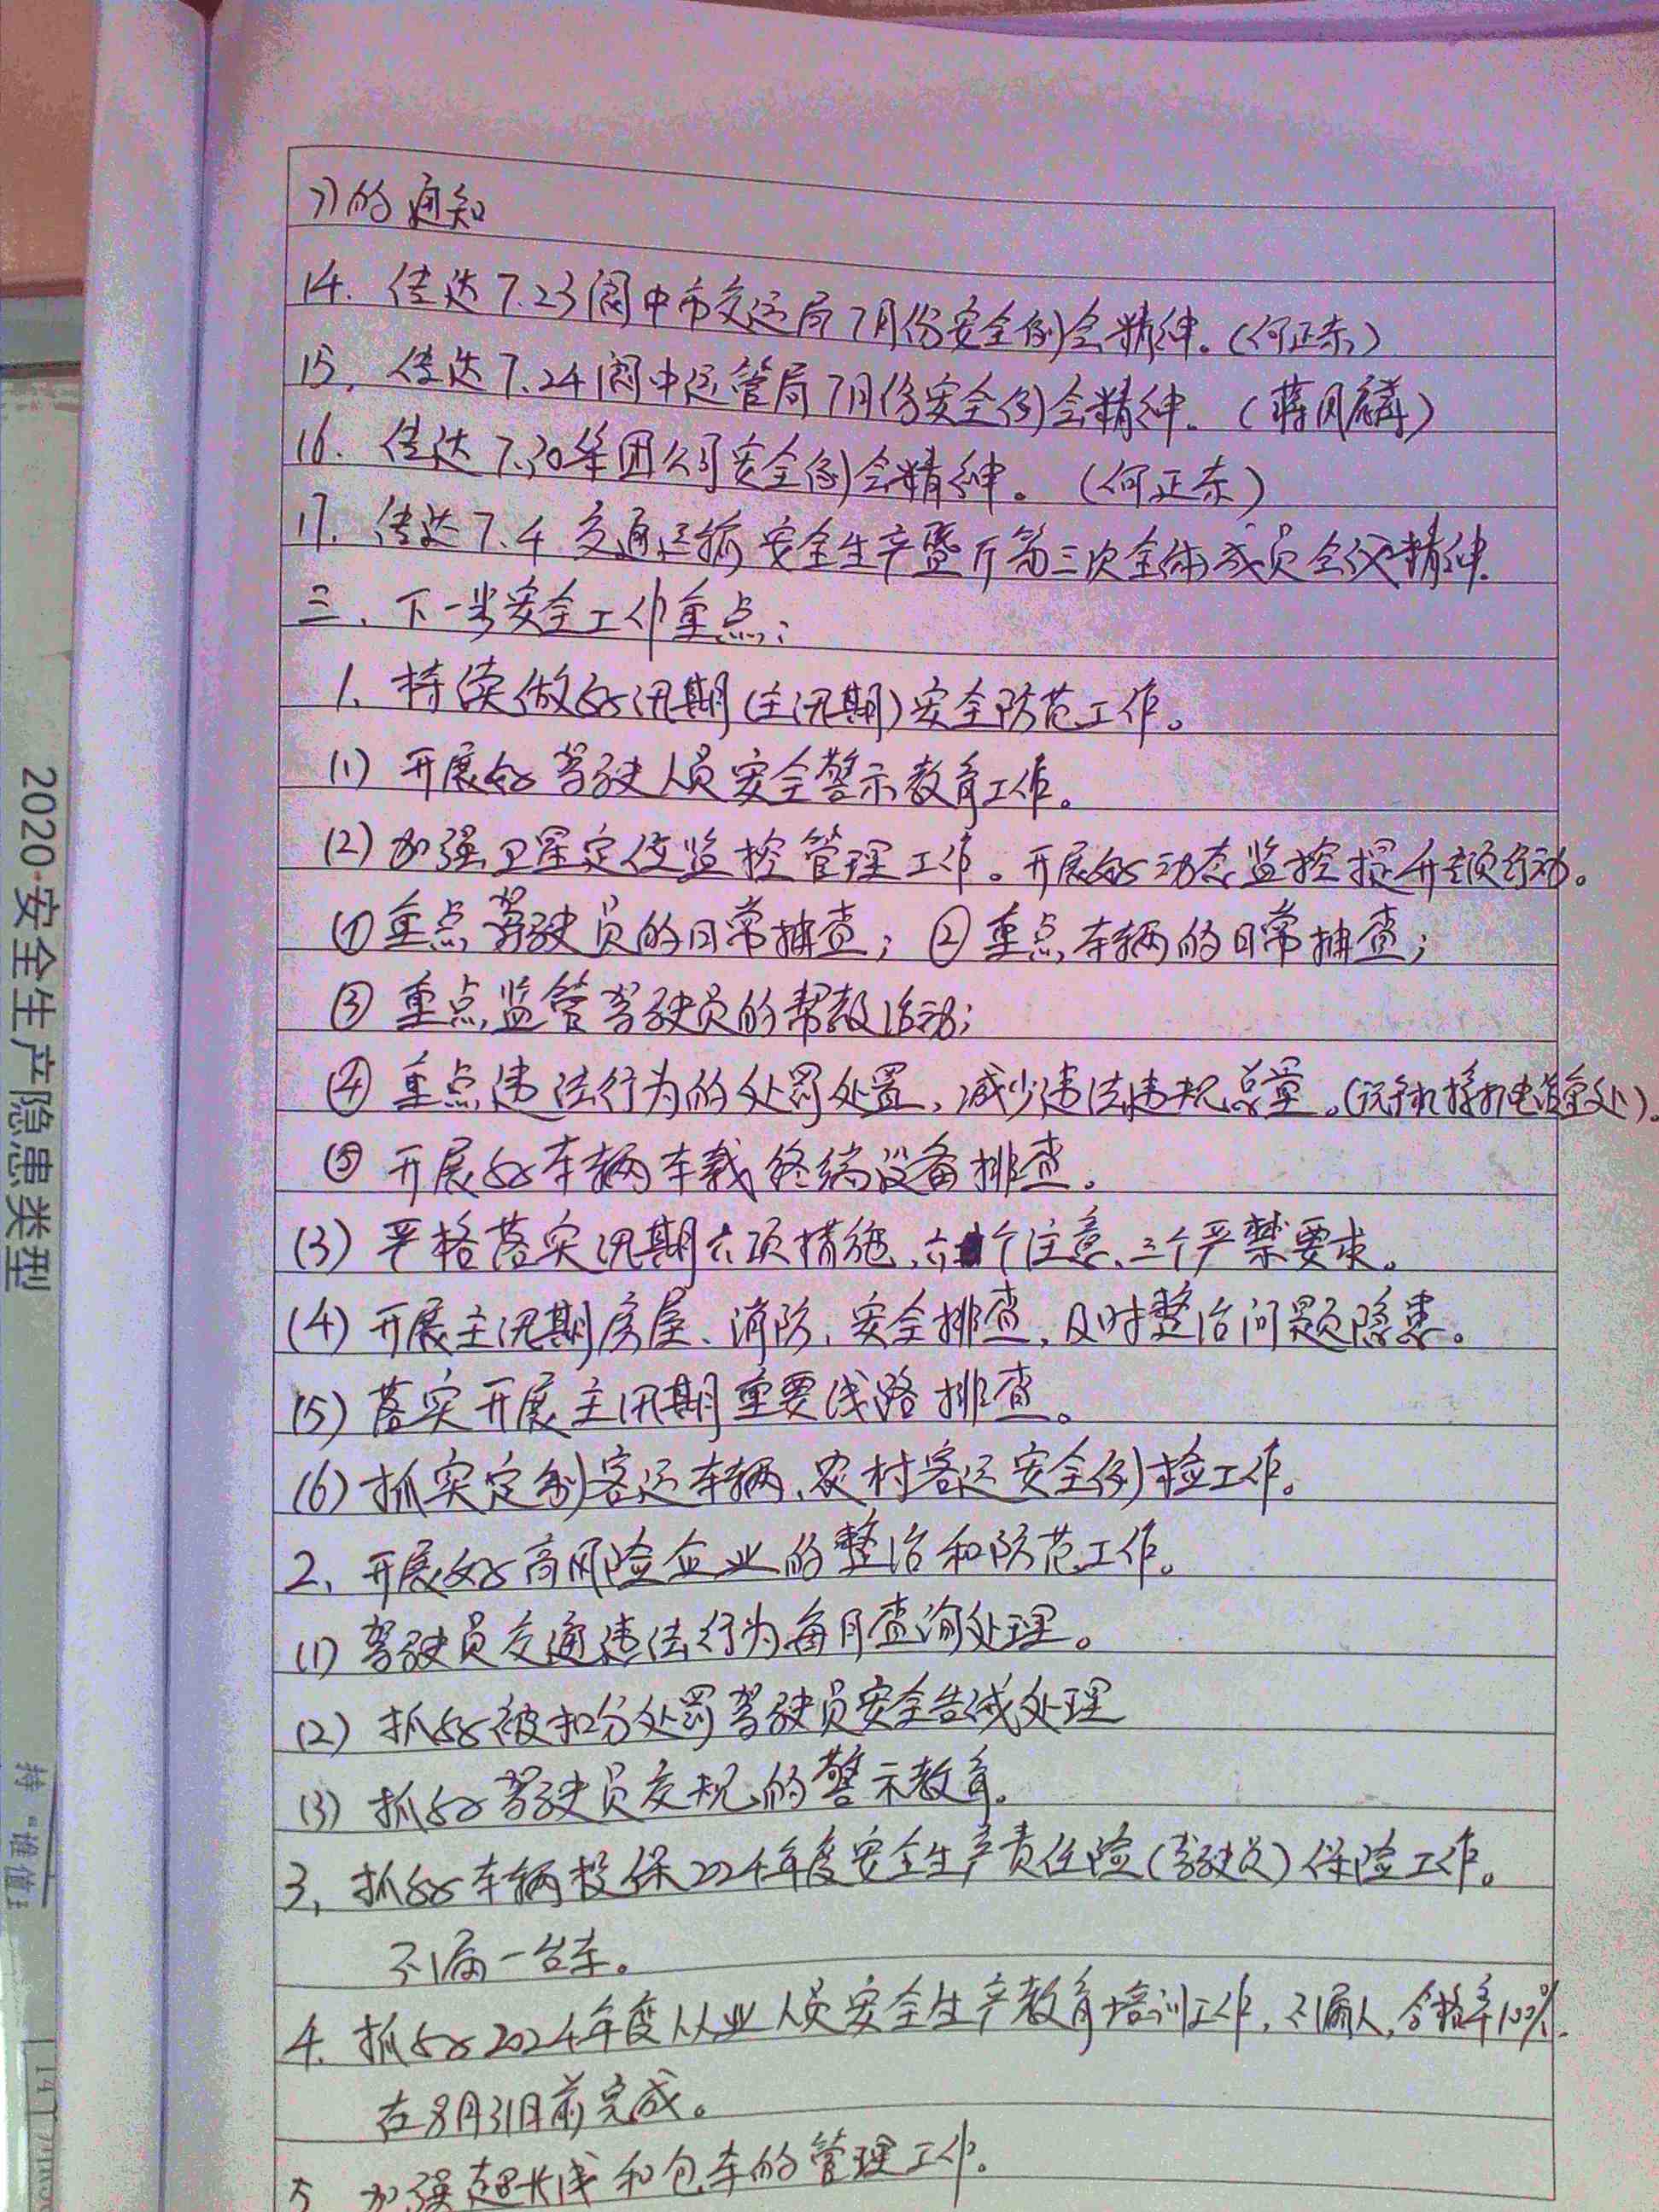 习的通知
14. 传达7.23阆中市交运局7月份安全例会精神。(何正东)
15. 传达7.24阆中运管局7月份安全例会精神。(蒋风麟)
16. 传达7.30集团公司安全例会精神。(何正东)
17. 传达7.4交通运输安全生产暨厅第三次全体成员会议精神.
三、下一步安全工作重点:
1. 持续做好汛期(主汛期)安全防范工作。
(1) 开展好驾驶人员安全警示教育工作。
(2) 加强卫星定位监控管理工作。开展好动态监控提升专项行动。
①重点驾驶员的日常抽查; ②重点车辆的日常抽查;
③ 重点监管驾驶员的帮教活动;
④ 重点违法行为的处罚处置、减少违法违规总量。(玩手机接打电话
⑤ 开展好车辆车载终端设备排查。
(3) 严格落实汛期六项措施、六个注意、三个严禁要求。
(4) 开展主汛期房屋、消防、安全排查,及时整治问题隐患。
(5) 落实开展主汛期重要线路排查。
(6) 抓实定制客运车辆、农村客运安全例检工作。
2、开展好高风险企业的整治和防范工作。
(1) 驾驶员交通违法行为每月查询处理。
(2) 抓好被扣分处罚驾驶员安全告诫处理
(3) 抓好驾驶员交规的警示教育。
3、抓好车辆投保2024年度安全生产责任险(驾驶员)保险工作。
不漏一台车。
4. 抓好2024年度从业人员安全生产教育培训工作,不漏人,合格率100%.
在8月31日前完成。
5 加强超长线和包车的管理工作。
2020·安全生产隐患类型